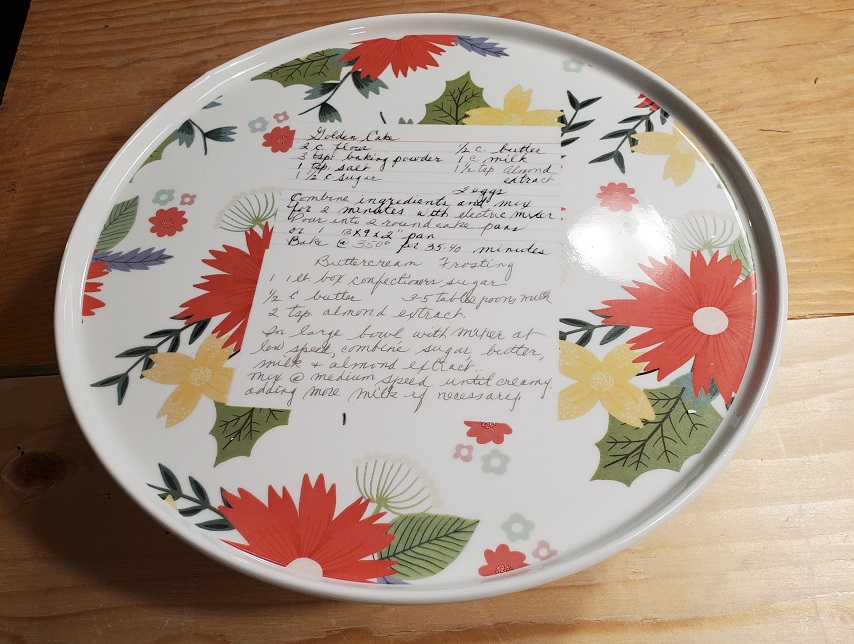 Golden Cake
2 c. flour 1/2 c. butter
3 tsp. baking powder 1 c milk
1 tsp. salt 1 1/2 tsp almond
1 1/2 c sugar extract
2 eggs
Combine ingredients and mix
for 2 minutes with electric mixer
Pour into 2 round cake pans
or 1 13x9x2" pan
Bake @ 350° for 35-40 minutes
Buttercream Frosting
1 1 lb box confectioners sugar
1/2 c butter 3-5 tablespoons milk
2 tsp. almond extract.
In large bowl with mixer at
low speed, combine sugar butter,
milk & almond extract.
mix @ medium speed until creamy
adding more milk if necessary